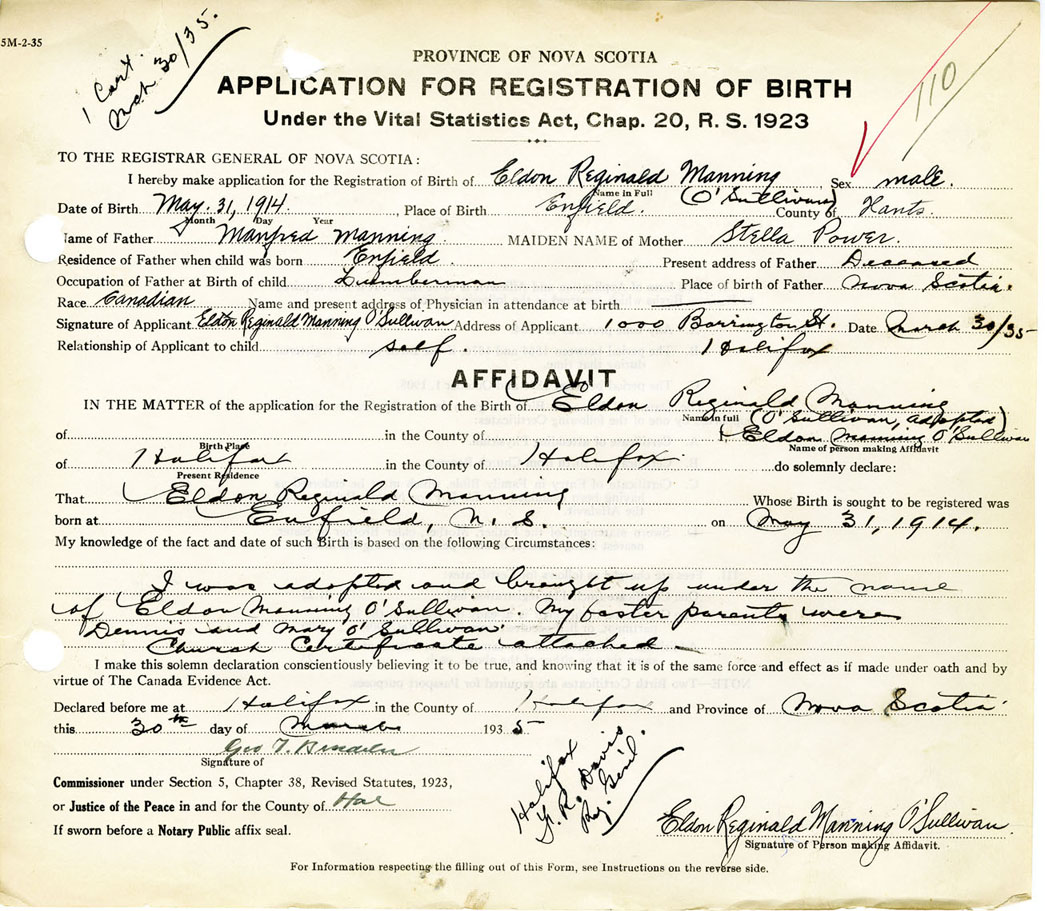 5M-2-35
1 Cert.
Mch 30/35.
110
PROVINCE OF NOVA SCOTIA
APPLICATION FOR REGISTRATION OF BIRTH
Under the Vital Statistics Act, Chap. 20, R. S. 1923
TO THE REGISTRAR GENERAL OF NOVA SCOTIA:
I hereby make application for the Registration of Birth of Eldon Reginald Manning Sex male.
Name in Full (O'Sullivan)
Date of Birth May. 31, 1914. Place of Birth Enfield. County of Hants.
Month Day Year
Name of Father Manfred Manning. MAIDEN NAME of Mother Stella Power.
Residence of Father when child was born Enfield. Present address of Father Deceased
Occupation of Father at Birth of child Lumberman Place of birth of Father Nova Scotia.
Race Canadian Name and present address of Physician in attendance at birth
Signature of Applicant Eldon Reginald Manning O'Sullivan Address of Applicant 1000 Barrington St. Date March 30/35
Relationship of Applicant to child self. Halifax
AFFIDAVIT
IN THE MATTER of the application for the Registration of the Birth of Eldon Reginald Manning
Name in full (O'Sullivan, adopted)
of in the County of I Eldon Manning O'Sullivan
Birth Place Name of person making Affidavit
of Halifax in the County of Halifax. do solemnly declare:
Present Residence
That Eldon Reginald Manning Whose Birth is sought to be registered was
born at Enfield, N. S. on May 31, 1914.
My knowledge of the fact and date of such Birth is based on the following Circumstances:
I was adopted and brought up under the name
of Eldon Manning O'Sullivan. My foster parents were
Dennis and Mary O'Sullivan.
Church Certificate attached
I make this solemn declaration conscientiously believing it to be true, and knowing that it is of the same force and effect as if made under oath and by
virtue of The Canada Evidence Act.
Declared before me at Halifax in the County of Halifax and Province of Nova Scotia
this 30th day of March 1935
Geo T.
Signature of
Commissioner under Section 5, Chapter 38, Revised Statutes, 1923,
or Justice of the Peace in and for the County of Hal
If sworn before a Notary Public affix seal.
Halifax
R. Davis
Reg. Genl.
Eldon Reginald Manning O'Sullivan.
Signature of Person making Affidavit.
For Information respecting the filling out of this Form, see Instructions on the reverse side.